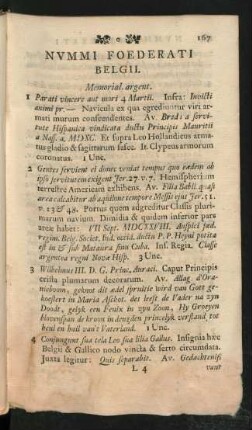 167
NVMMI FOEDERATI
BELGII.
Memorial. argent.
1 Parati vincere aut mori 4 Martii. Infra: Invicti
animi pr. — Navicula ex qua egrediuntur viri ar-
mati murum conscendentes. Av. Breda a servi-
tute Hispanica vindicata ductu Principis Mauritii
a Nass. A. MDXC. Et supra Leo Hollandicus arma-
tus gladio & sagittarum fasce. It. Clypeus armorum
coronatus. 1 Unc.
2 Gentes servient ei donec veniat tempus quo eadem ob
ipso servitutem exigent Jer. 27. v. 7. Hemisphærium
terrestre Americam exhibens. Av. Filia Babil. quasi
area calcabitur ab
v. 13 & 48. Portus quem egreditur Classis pluri-
marum navium. Dimidia & quidem inferior pars
aræ habet: VII Sept. MDCXXVIII. Auspicii fœd.
regim. Belg. Societ. Ind. occid. ductu P. P. Heynii potita
est in & sub Matanza sinu Cuba. Inf. Regia. Classe
argentea regni Novæ Hisp. 3 Unc.
3 Wilhelmus III. D. G. Princ. Aurasi. Caput Principis
crista plumarum decoratum. Av. Allag d'Ora-
nieboom, gehuut dit adel spruitie wird van Gott ge-
hoesjert in Maria Aschot. des leest de Vader na zyn
Doodt, gelyk een Fenix in zyn Zonn, Hy Groeyen
Hovenspan de kroon in deugden princelyk verstand tot
heul en boil van't Vaterland. 1 Unc.
4 Conjungunt sua cela Leo sua lilia Gallus. Insignia hæc
Belgii & Gallico nodo vincta & serto circumdata.
Juxta legitur: Quis separabit. Av. Gedachtenisf
L 4
vant